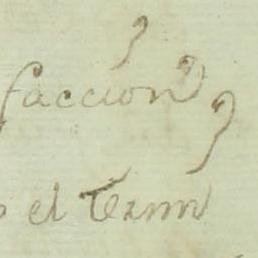 faccion
el Term